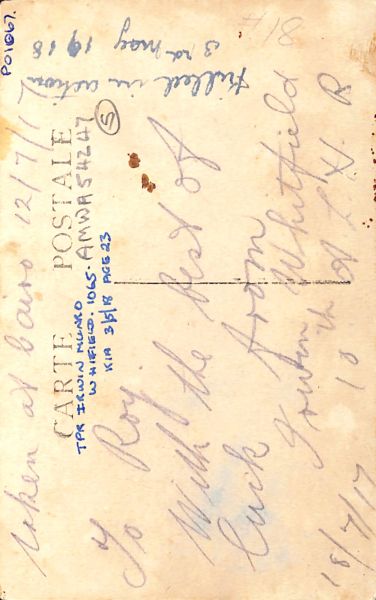 taken at Cairo 12/7/17
CARTE POSTALE
TPR IRWIN MUNRO
WHIFIELD. 1065.
KIA 3/5/18 AGE 23
AMWA54247
5
To Roy
With the best of
Luck from
Irwin Whitfield
10th A L H R
18/7/17
Killed in action
3rd may 1918
P01067.